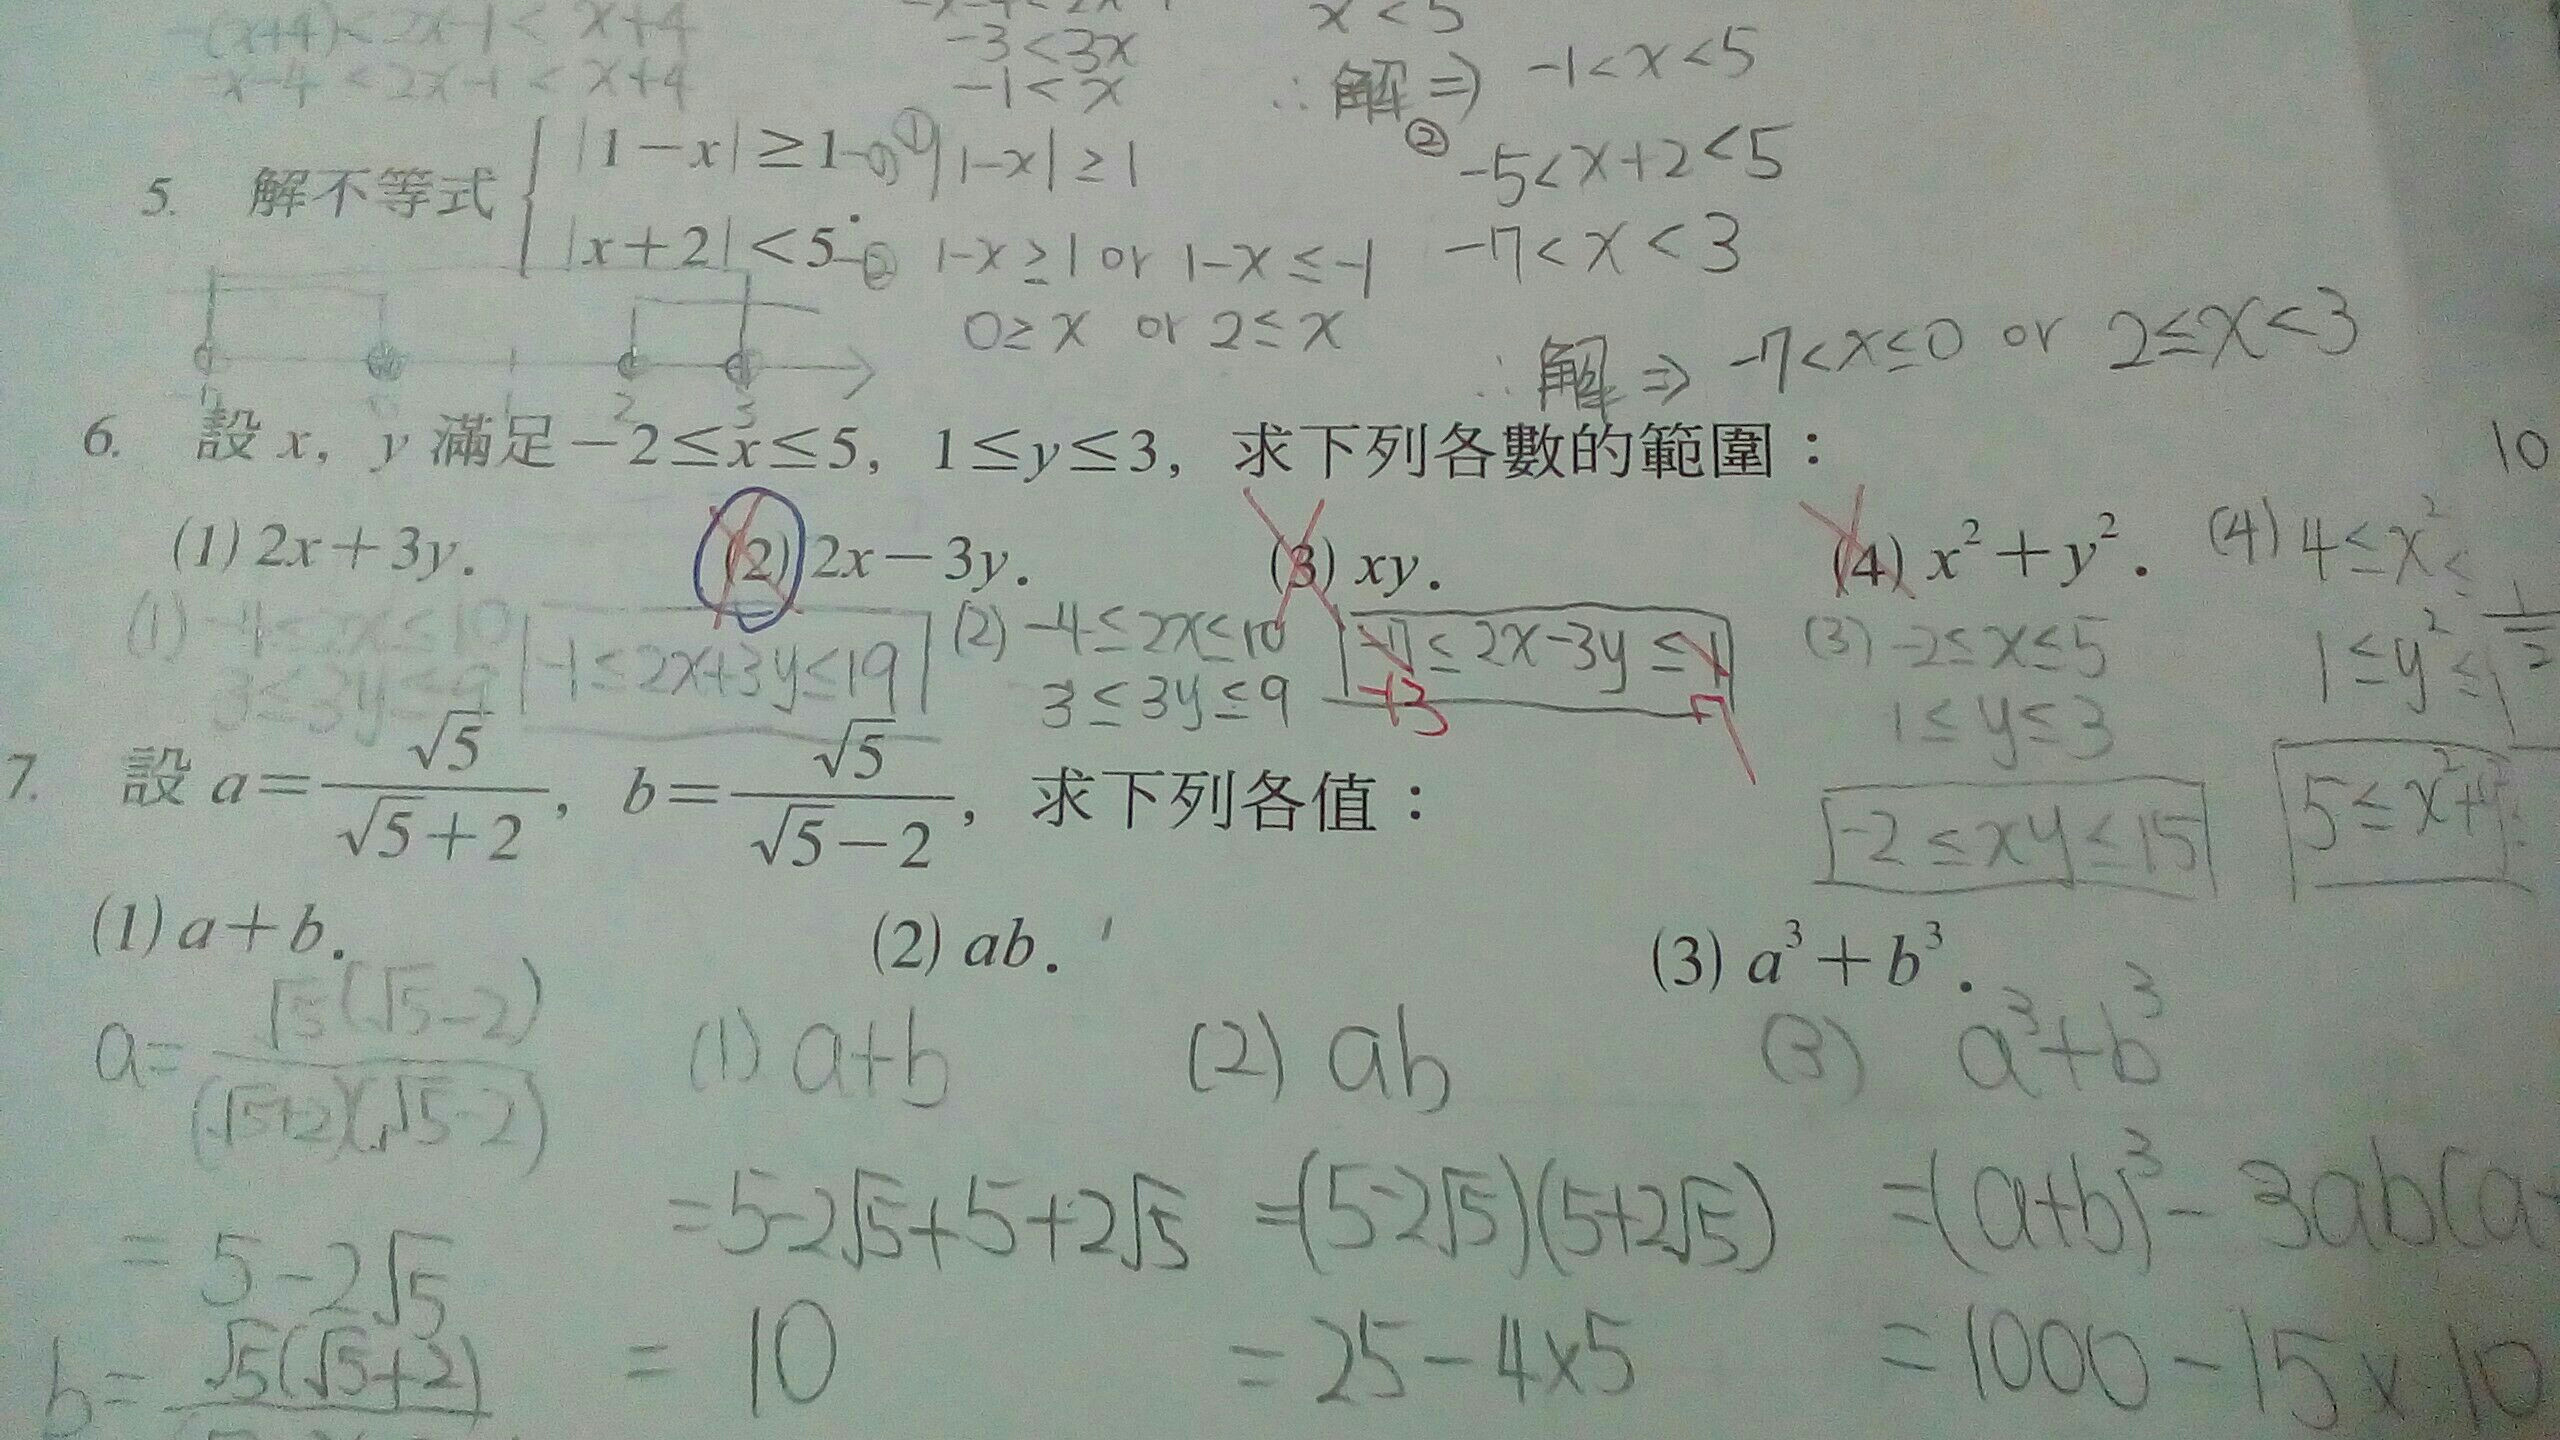 -(x+4)<2x-1<x+4
-x-4<2x-1<x+4
-3<3x
-1<x
x<5
∴解⇒ -1<x<5
5. 解不等式 { |1-x|≥1 -①
|x+2|<5. -②
① |1-x|≥1
1-x≥1 or 1-x≤-1
0≥x or 2≤x
② -5<x+2<5
-7<x<3
∴解⇒ -7<x≤0 or 2≤x<3
2 3
6. 設 x, y 滿足 -2≤x≤5, 1≤y≤3, 求下列各數的範圍:
10
(1) 2x+3y. (2) 2x-3y. (3) xy. (4) x²+y².
(1) -4≤2x≤10
3≤3y≤9
-1≤2x+3y≤19
(2) -4≤2x≤10
3≤3y≤9
-7≤2x-3y≤1
-13 7
(3) -2≤x≤5
1≤y≤3
-2≤xy≤15
(4) 4≤x²≤
1≤y²≤
5≤x²+y²
7. 設 a=√5/(√5+2), b=√5/(√5-2), 求下列各值:
(1) a+b. (2) ab. (3) a³+b³.
a=√5(√5-2)/(√5+2)(√5-2)
=5-2√5
b=√5(√5+2)
(1) a+b
=5-2√5+5+2√5
=10
(2) ab
=(5-2√5)(5+2√5)
=25-4×5
(3) a³+b³
=(a+b)³-3ab(a+
=1000-15×10